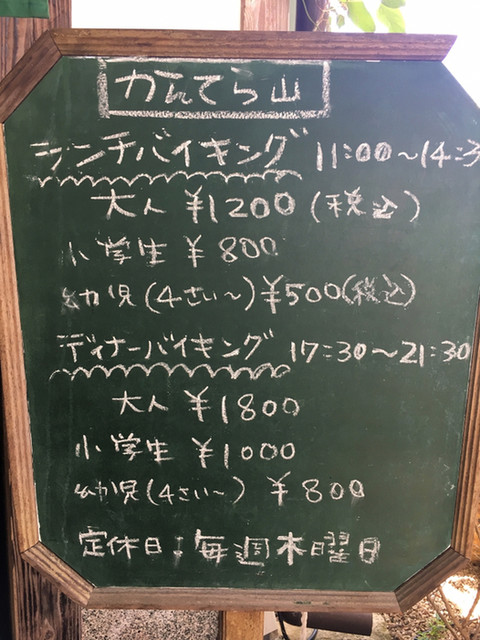 かんてら山
ランチバイキング 11:00～14:3
大人 ¥1200(税込)
小学生 ¥800
幼児(4さい～)¥500(税込)
ディナーバイキング 17:30～21:30
大人 ¥1800
小学生 ¥1000
幼児(4さい～) ¥800
定休日:毎週木曜日